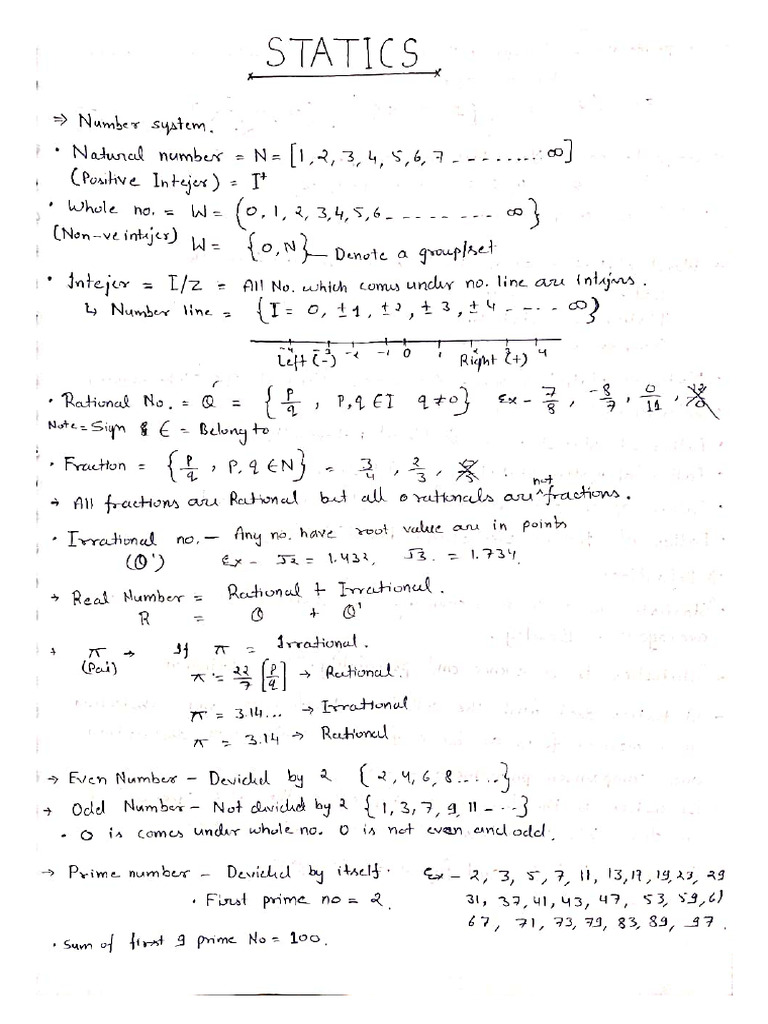 STATICS
⇒ Number system.
• Natural number = N = [1, 2, 3, 4, 5, 6, 7 - - - - ...... ∞]
(Positive Intejer) = I⁺
• Whole no. = W = (0, 1, 2, 3, 4, 5, 6 - - - - - - - ∞}
(Non-ve intijer) W = {0, N} — Denote a group/set
• Intejer = I/Z = All No. which comes under no. line are intijers.
↳ Number line = {I = 0, ±1, ±2, ±3, ±4 - - - - ∞)}
-4 -3 -2 -1 0 1 2 3 4
Left (-) Right (+)
• Rational No. = Q = {p/q, P, q ∈ I q ≠ 0} Ex - 7/8, -8/7, 0/11,
Note = Sign & ∈ = Belong to
• Fraction = {p/q, P, q ∈ N} = 3/4, 2/3,
→ All fractions are Rational but all rationals are ^not fractions.
• Irrational no. – Any no. have root, value are in points
(Q') Ex - √2 = 1.432, √3. = 1.734.
→ Real Number = Rational + Irrational.
R = Q + Q'
→ π → If π = Irrational.
(Pai) π = 22/7 [p/q] → Rational.
π = 3.14... → Irrational
π = 3.14 → Rational
→ Even Number – Devided by 2 {2, 4, 6, 8.....}
→ Odd Number – Not divided by 2 {1, 3, 7, 9, 11 - ..}
• 0 is comes under whole no. 0 is not even and odd.
→ Prime number – Devided by itself. Ex – 2, 3, 5, 7, 11, 13, 17, 19, 23, 29
• First prime no = 2. 31, 37, 41, 43, 47, 53, 59, 61
67, 71, 73, 79, 83, 89, 97.
• Sum of first 9 prime No = 100.